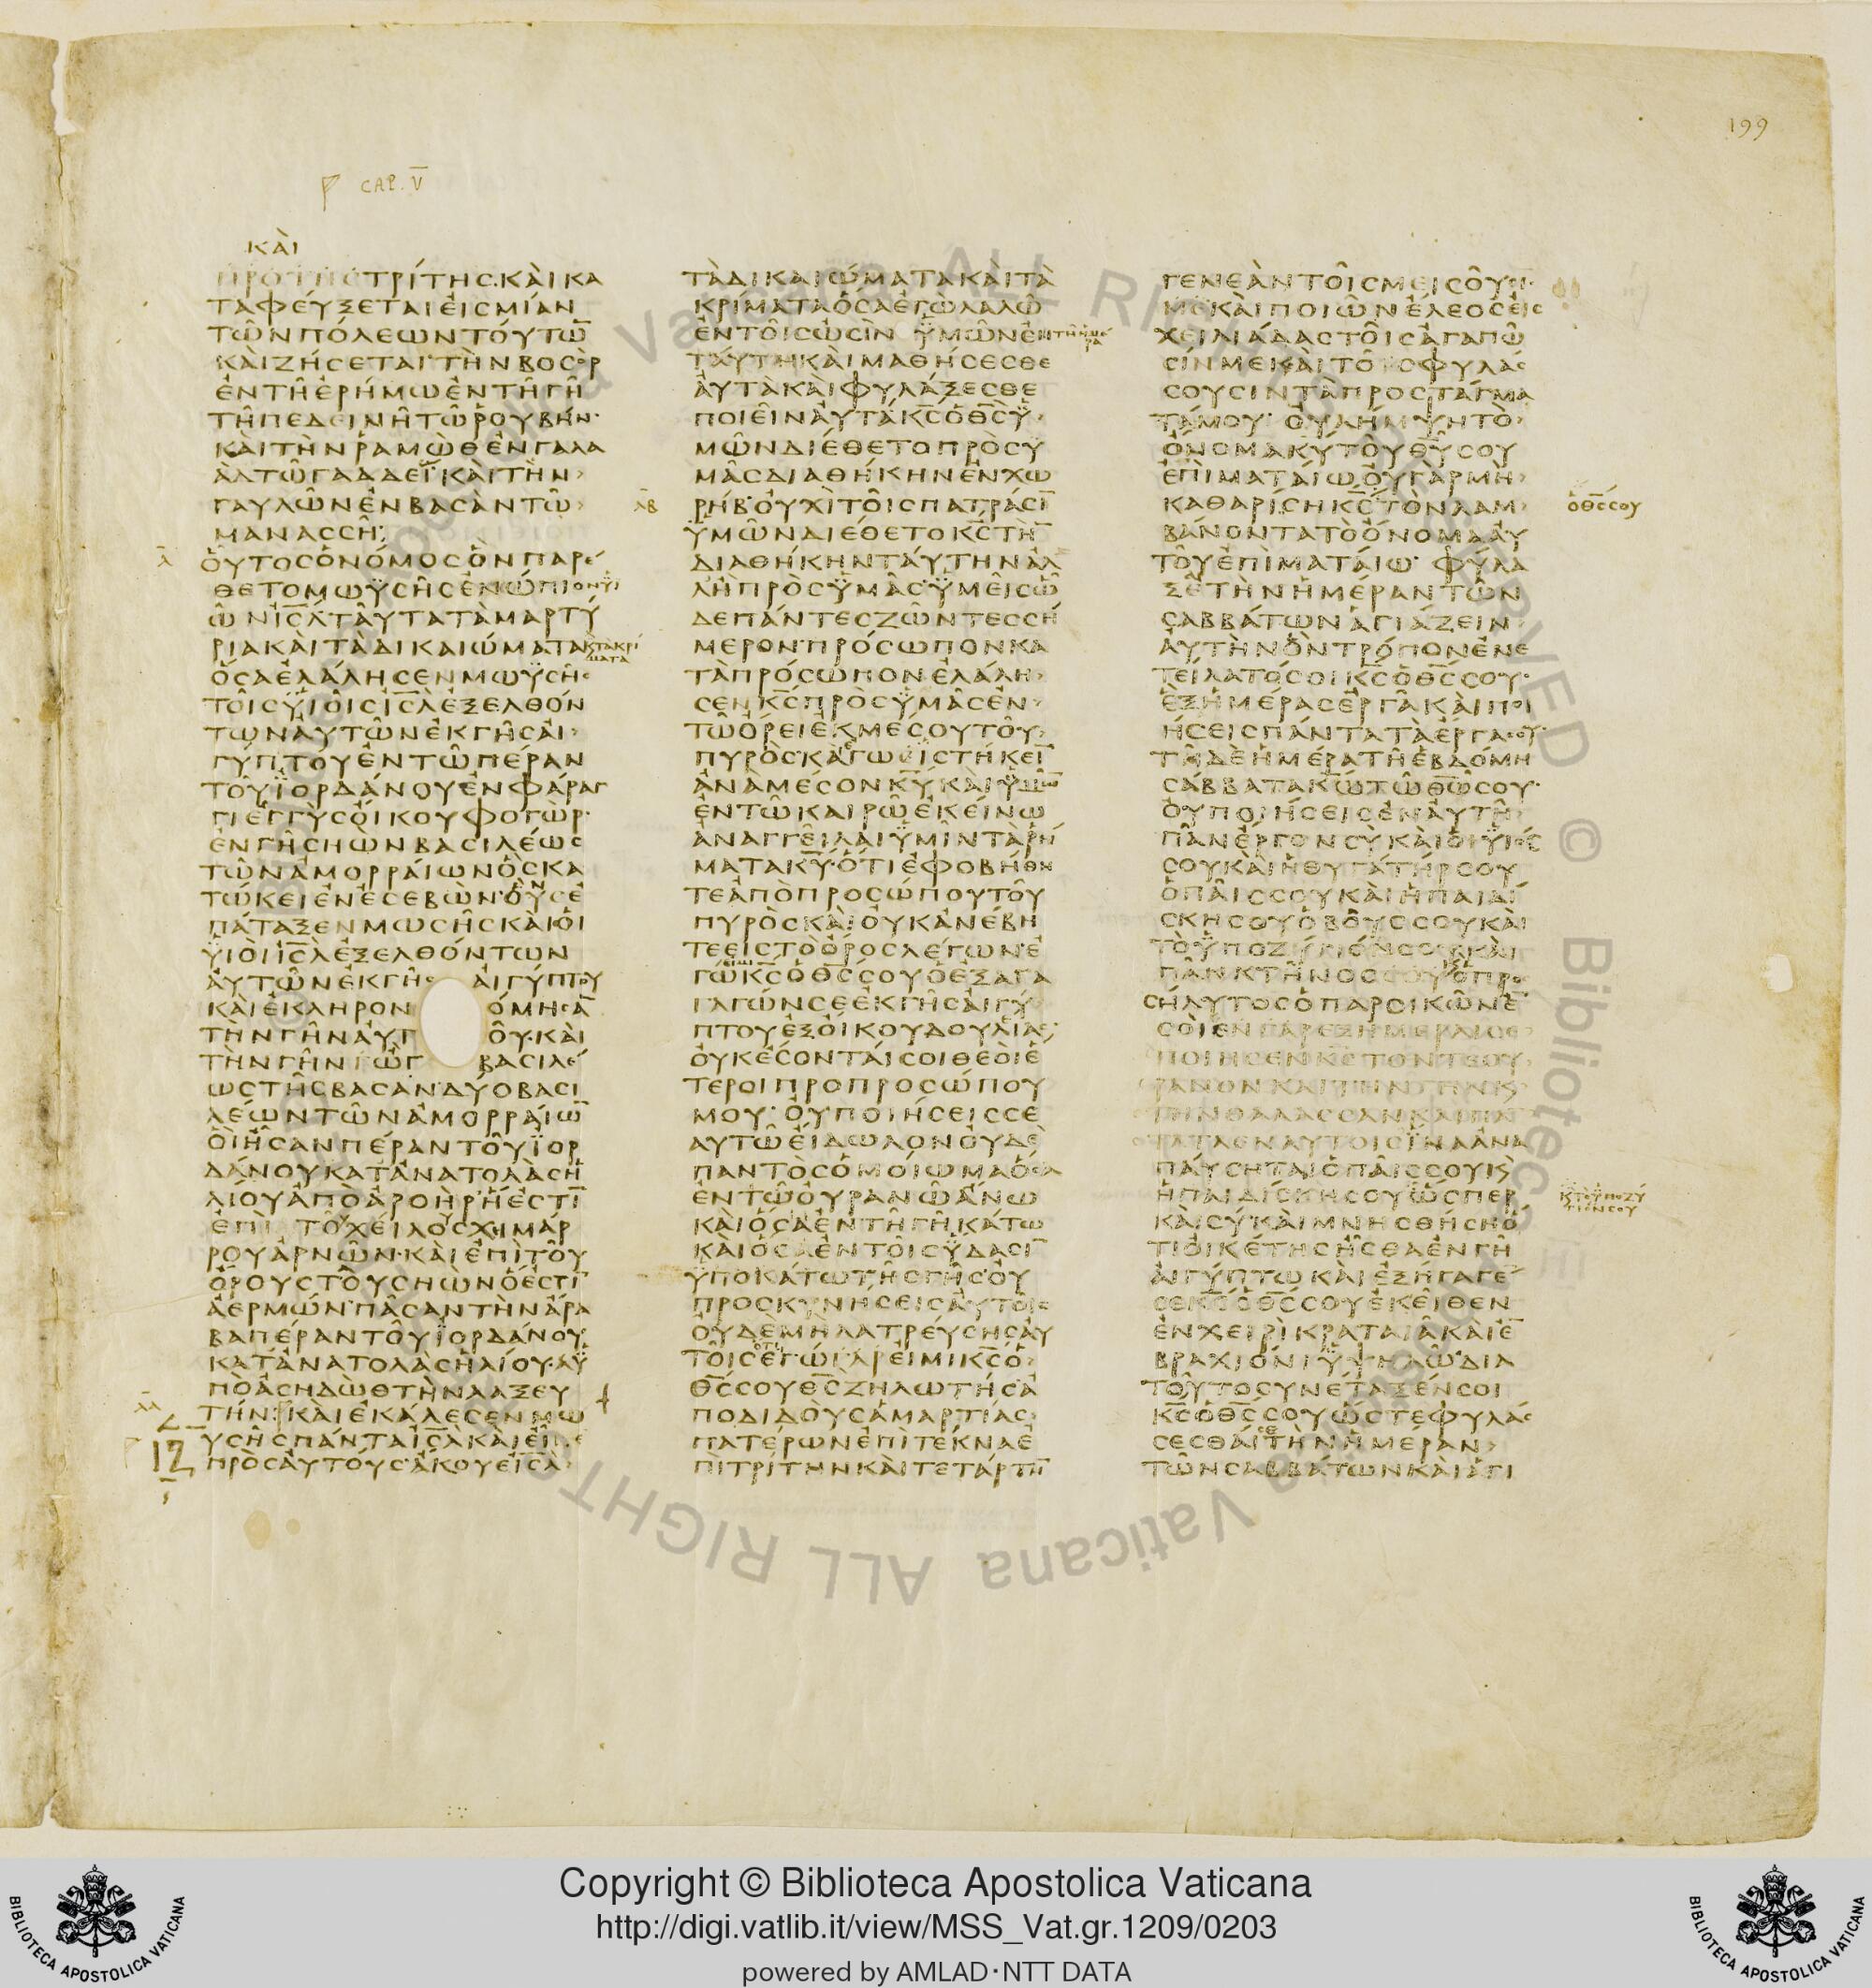 199
CAP. V
ΚΑΙ
ΠΡΟ ΤΗΣ ΤΡΙΤΗC·ΚΑΙ ΚΑ
ΤΑΦΕΥΞΕΤΑΙ ΕΙC ΜΙΑΝ
ΤΩΝ ΠΟΛΕΩΝ ΤΟΥΤΩ̅
ΚΑΙ ΖΗCΕΤΑΙ ΤΗΝ ΒΟCΟΡ
ΕΝ ΤΗ ΕΡΗΜΩ ΕΝ ΤΗ ΓΗ
ΤΗ ΠΕΔΕΙΝΗ ΤΩ ΡΟΥΒΗΝ·
ΚΑΙ ΤΗΝ ΡΑΜΩΘ ΕΝ ΓΑΛΑ
ΑΔ ΤΩ ΓΑΔΔΕΙ ΚΑΙ ΤΗΝ
ΓΑΥΛΩΝ ΕΝ ΒΑCΑΝ ΤΩ
ΜΑΝΑCCΗ·
ΟΥΤΟC Ο ΝΟΜΟC ΟΝ ΠΑΡΕ
ΘΕΤΟ ΜΩΥCΗC ΕΝΩΠΙΟΝ ΥΙ
ΩΝ ΙC̅Λ ΤΑΥΤΑ ΤΑ ΜΑΡΤΥ
ΡΙΑ ΚΑΙ ΤΑ ΔΙΚΑΙΩΜΑΤΑ Κ ΤΑ ΚΡΙΜΑΤΑ
ΟCΑ ΕΛΑΛΗCΕΝ ΜΩΥCΗC
ΤΟΙC ΥΙΟΙC ΙC̅Λ ΕΞΕΛΘΟΝ
ΤΩΝ ΑΥΤΩΝ ΕΚ ΓΗC ΑΙ
ΓΥΠΤΟΥ ΕΝ ΤΩ ΠΕΡΑΝ
ΤΟΥ ΙΟΡΔΑΝΟΥ ΕΝ ΦΑΡΑΓ
ΓΙ ΕΓΓΥC ΟΙΚΟΥ ΦΟΓΩΡ·
ΕΝ ΓΗ CΗΩΝ ΒΑCΙΛΕΩC
ΤΩΝ ΑΜΟΡΡΑΙΩΝ ΟC ΚΑ
ΤΩΚΕΙ ΕΝ ΕCΕΒΩΝ·ΟΥC Ε
ΠΑΤΑΞΕΝ ΜΩCΗC ΚΑΙ ΟΙ
ΥΙΟΙ ΙC̅Λ ΕΞΕΛΘΟΝΤΩΝ
ΑΥΤΩΝ ΕΚ ΓΗC ΑΙΓΥΠΤΟΥ
ΚΑΙ ΕΚΛΗΡΟΝΟΜΗCΑ̅
ΤΗΝ ΓΗΝ ΑΥΤΟΥ·ΚΑΙ
ΤΗΝ ΓΗΝ ΓΩΓ ΒΑCΙΛΕ
ΩC ΤΗC ΒΑCΑΝ·ΔΥΟ ΒΑCΙ
ΛΕΩΝ ΤΩΝ ΑΜΟΡΡΑΙΩ̅
ΟΙ ΗCΑΝ ΠΕΡΑΝ ΤΟΥ ΙΟΡ
ΔΑΝΟΥ ΚΑΤ ΑΝΑΤΟΛΑC Η
ΛΙΟΥ ΑΠΟ ΑΡΟΗΡ·Η ΕCΤΙ̅
ΕΠΙ ΤΟΥ ΧΕΙΛΟΥC ΧΙΜΑΡ
ΡΟΥ ΑΡΝΩΝ·ΚΑΙ ΕΠΙ ΤΟΥ
ΟΡΟΥC ΤΟΥ CΗΩΝ Ο ΕCΤΙ̅
ΑΕΡΜΩΝ·ΠΑCΑΝ ΤΗΝ ΑΡΑ
ΒΑ ΠΕΡΑΝ ΤΟΥ ΙΟΡΔΑΝΟΥ
ΚΑΤ ΑΝΑΤΟΛΑC ΗΛΙΟΥ·ΑΥ
ΠΟ ΑCΗΔΩΘ ΤΗΝ ΛΑΞΕΥ
ΤΗΝ· ΚΑΙ ΕΚΑΛΕCΕΝ ΜΩ
ΥCΗC ΠΑΝΤΑ ΙC̅Λ ΚΑΙ ΕΙΠΕ
ΠΡΟC ΑΥΤΟΥC·ΑΚΟΥΕ ΙC̅Λ
ΤΑ ΔΙΚΑΙΩΜΑΤΑ ΚΑΙ ΤΑ
ΚΡΙΜΑΤΑ ΟCΑ ΕΓΩ ΛΑΛΩ
ΕΝ ΤΟΙC ΩCΙΝ ΥΜΩΝ ΕΝ ΤΗ ΗΜΕΡΑ
ΤΑΥΤΗ ΚΑΙ ΜΑΘΗCΕCΘΕ
ΑΥΤΑ ΚΑΙ ΦΥΛΑΞΕCΘΕ
ΠΟΙΕΙΝ ΑΥΤΑ Κ̅C̅ Ο Θ̅C̅ Υ
ΜΩΝ ΔΙΕΘΕΤΟ ΠΡΟC Υ
ΜΑC ΔΙΑΘΗΚΗΝ ΕΝ ΧΩ
ΡΗΒ·ΟΥΧΙ ΤΟΙC ΠΑΤΡΑCΙ̅
ΥΜΩΝ ΔΙΕΘΕΤΟ Κ̅C̅ ΤΗ̅
ΔΙΑΘΗΚΗΝ ΤΑΥΤΗΝ ΑΛ
ΛΗ ΠΡΟC ΥΜΑC·ΥΜΕΙC Ω
ΔΕ ΠΑΝΤΕC ΖΩΝΤΕC CΗ
ΜΕΡΟΝ·ΠΡΟCΩΠΟΝ ΚΑ
ΤΑ ΠΡΟCΩΠΟΝ ΕΛΑΛΗ
CΕΝ Κ̅C̅ ΠΡΟC ΥΜΑC ΕΝ
ΤΩ ΟΡΕΙ ΕΚ ΜΕCΟΥ ΤΟΥ
ΠΥΡΟC·ΚΑΓΩ ΙCΤΗΚΕΙ̅
ΑΝΑ ΜΕCΟΝ Κ̅Υ̅ ΚΑΙ ΥΜΩΝ
ΕΝ ΤΩ ΚΑΙΡΩ ΕΚΕΙΝΩ
ΑΝΑΓΓΕΙΛΑΙ ΥΜΙΝ ΤΑ ΡΗ
ΜΑΤΑ Κ̅Υ̅·ΟΤΙ ΕΦΟΒΗΘΗ
ΤΕ ΑΠΟ ΠΡΟCΩΠΟΥ ΤΟΥ
ΠΥΡΟC ΚΑΙ ΟΥΚ ΑΝΕΒΗ
ΤΕ ΕΙC ΤΟ ΟΡΟC ΛΕΓΩΝ·Ε
ΓΩ Κ̅C̅ Ο Θ̅C̅ CΟΥ Ο ΕΞΑΓΑ
ΓΑΓΩΝ CΕ ΕΚ ΓΗC ΑΙΓΥ
ΠΤΟΥ ΕΞ ΟΙΚΟΥ ΔΟΥΛΙΑC·
ΟΥΚ ΕCΟΝΤΑΙ CΟΙ ΘΕΟΙ Ε
ΤΕΡΟΙ ΠΡΟ ΠΡΟCΩΠΟΥ
ΜΟΥ· ΟΥ ΠΟΙΗCΕΙC CΕ
ΑΥΤΩ ΕΙΔΩΛΟΝ ΟΥΔΕ
ΠΑΝΤΟC ΟΜΟΙΩΜΑ ΟCΑ
ΕΝ ΤΩ ΟΥΡΑΝΩ ΑΝΩ
ΚΑΙ ΟCΑ ΕΝ ΤΗ ΓΗ ΚΑΤΩ
ΚΑΙ ΟCΑ ΕΝ ΤΟΙC ΥΔΑCΙ̅
ΥΠΟΚΑΤΩ ΤΗC ΓΗC·ΟΥ
ΠΡΟCΚΥΝΗCΕΙC ΑΥΤΟΙC
ΟΥΔΕ ΜΗ ΛΑΤΡΕΥCΗC ΑΥ
ΤΟΙC ΟΤΙ ΕΓΩ ΓΑΡ ΕΙΜΙ Κ̅C̅ Ο
Θ̅C̅ CΟΥ Θ̅C̅ ΖΗΛΩΤΗC Α
ΠΟΔΙΔΟΥC ΑΜΑΡΤΙΑC
ΠΑΤΕΡΩΝ ΕΠΙ ΤΕΚΝΑ Ε
ΠΙ ΤΡΙΤΗΝ ΚΑΙ ΤΕΤΑΡΤΗ̅
ΓΕΝΕΑΝ ΤΟΙC ΜΕΙCΟΥCΙ
ΜΕ ΚΑΙ ΠΟΙΩΝ ΕΛΕΟC ΕΙC
ΧΕΙΛΙΑΔΑC ΤΟΙC ΑΓΑΠΩ
CΙΝ ΜΕ ΚΑΙ ΤΟΙC ΦΥΛΑC
CΟΥCΙΝ ΤΑ ΠΡΟCΤΑΓΜΑ
ΤΑ ΜΟΥ· ΟΥ ΛΗΜΨΗ ΤΟ
ΟΝΟΜΑ Κ̅Υ̅ ΤΟΥ Θ̅Υ̅ CΟΥ
ΕΠΙ ΜΑΤΑΙΩ ΟΥ ΓΑΡ ΜΗ
ΚΑΘΑΡΙCΗ Κ̅C̅ ΤΟΝ ΛΑΜ Ο Θ̅C̅ CΟΥ
ΒΑΝΟΝΤΑ ΤΟ ΟΝΟΜΑ ΑΥ
ΤΟΥ ΕΠΙ ΜΑΤΑΙΩ· ΦΥΛΑ
ΞΕ ΤΗΝ ΗΜΕΡΑΝ ΤΩΝ
CΑΒΒΑΤΩΝ ΑΓΙΑΖΕΙΝ
ΑΥΤΗΝ ΟΝ ΤΡΟΠΟΝ ΕΝΕ
ΤΕΙΛΑΤΟ CΟΙ Κ̅C̅ Ο Θ̅C̅ CΟΥ·
ΕΞ ΗΜΕΡΑC ΕΡΓΑ ΚΑΙ ΠΟΙ
ΗCΕΙC ΠΑΝΤΑ ΤΑ ΕΡΓΑ CΟΥ·
ΤΗ ΔΕ ΗΜΕΡΑ ΤΗ ΕΒΔΟΜΗ
CΑΒΒΑΤΑ Κ̅Ω̅ ΤΩ Θ̅Ω̅ CΟΥ·
ΟΥ ΠΟΙΗCΕΙC ΕΝ ΑΥΤΗ
ΠΑΝ ΕΡΓΟΝ CΥ ΚΑΙ ΟΙ ΥΙΟΙ
CΟΥ ΚΑΙ Η ΘΥΓΑΤΗΡ CΟΥ
Ο ΠΑΙC CΟΥ ΚΑΙ Η ΠΑΙΔΙ
CΚΗ CΟΥ Ο ΒΟΥC CΟΥ ΚΑΙ
ΤΟ ΥΠΟΖΥΓΙΟΝ CΟΥ ΚΑΙ
ΠΑΝ ΚΤΗΝΟC CΟΥ Κ Ο ΠΡΟ
CΗΛΥΤΟC Ο ΠΑΡΟΙΚΩΝ Ε̅
CΟΙ ΕΝ ΓΑΡ ΕΞ ΗΜΕΡΑΙC Ε
ΠΟΙΗCΕΝ Κ̅C̅ ΤΟΝ ΤΕ ΟΥ
ΡΑΝΟΝ ΚΑΙ ΤΗΝ ΓΗΝ Κ
ΤΗΝ ΘΑΛΑCCΑΝ ΚΑΙ ΠΑΝ
ΤΑ ΤΑ ΕΝ ΑΥΤΟΙC ΙΝΑ ΑΝΑ
ΠΑΥCΗΤΑΙ Ο ΠΑΙC CΟΥ Κ
Η ΠΑΙΔΙCΚΗ CΟΥ ΩCΠΕΡ Κ ΤΟ ΥΠΟΖΥΓΙΟΝ CΟΥ
ΚΑΙ CΥ·ΚΑΙ ΜΝΗCΘΗCΗ Ο
ΤΙ ΟΙΚΕΤΗC ΗCΘΑ ΕΝ ΓΗ
ΑΙΓΥΠΤΩ ΚΑΙ ΕΞΗΓΑΓΕ
CΕ Κ̅C̅ Ο Θ̅C̅ CΟΥ ΕΚΕΙΘΕΝ
ΕΝ ΧΕΙΡΙ ΚΡΑΤΑΙΑ ΚΑΙ Ε̅
ΒΡΑΧΙΟΝΙ ΥΨΗΛΩ·ΔΙΑ
ΤΟΥΤΟ CΥΝΕΤΑΞΕΝ CΟΙ
Κ̅C̅ Ο Θ̅C̅ CΟΥ ΩCΤΕ ΦΥΛΑC
CΕCΘΑΙ ΤΗΝ ΗΜΕΡΑΝ
ΤΩΝ CΑΒΒΑΤΩΝ ΚΑΙ ΑΓΙ
Copyright © Biblioteca Apostolica Vaticana
http://digi.vatlib.it/view/MSS_Vat.gr.1209/0203
powered by AMLAD·NTT DATA
BIBLIOTECA APOSTOLICA VATICANA
BIBLIOTECA APOSTOLICA VATICANA